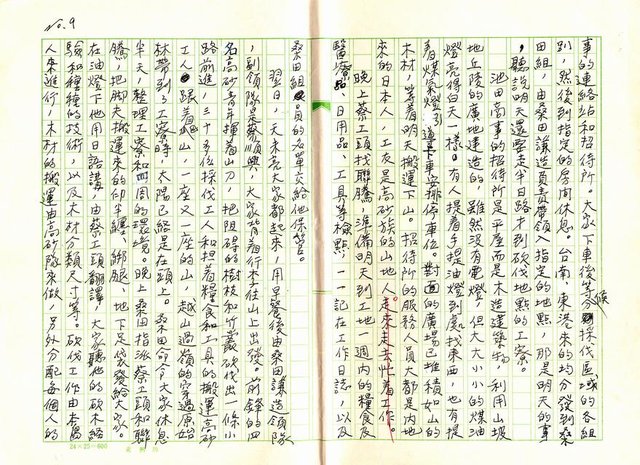 No. 9
事的連絡站和招待所。大家下車後等候採伐區域的各組
別，然後到指定的房間休息。台南、東港來的均分發到桑
田組，由桑田讓造負責帶領入指定的地點，那是明天的事
，聽說明天還要走半日路才到砍伐地點的工寮。
池田商事的招待所是平屋而是木造建築物，利用山坡
地丘陵的廣地建造的，雖然沒有電燈，但大大小小的煤油
燈亮得白天一樣。有人提着手提油燈到處找東西，也有提
着煤氣燈引導下車安排停車位。對面的廣場已堆積如山的
木材，等着明天搬運下山。招待所的服務人員大都是內地
來的日本人，工友是高砂族的山地人。走來走去忙着工作。
晚上蔡工頭找聯騰準備明天到工地一週內的糧食及
醫療品、日用品、工具等檢點，一一記在工作日誌，以及
桑田組員的名單交給他保管。
翌日，天未亮大家都起來，用早餐後由桑田讓造領隊
，副領隊是蔡順興，大家背着行李往山上出發。前鋒的四
名高砂青年揮着山刀，把阻碍的樹枝和竹叢砍伐出一條小
路前進，三十多位採伐工人和担着糧食和工具的搬運高砂
工人跟着。一山又一座的山，越山過嶺的穿過原始
林帶到了工寮時，太陽已經是在頭上。桑田命令大家休息
半天，整理工寮和四周的環境。晚上桑田指派蔡工頭和聯
騰，把脚夫搬運來的砍伐、綁腿、地下足袋發給大家。
在油燈下他用日語講，由蔡工頭翻譯，大家聽他的砍木經
驗和種種的技術，以及木材分類尺寸等。砍伐工作由本島
人來進行，木材的搬運由高砂隊來做，另外分配每個人的
24×25=600